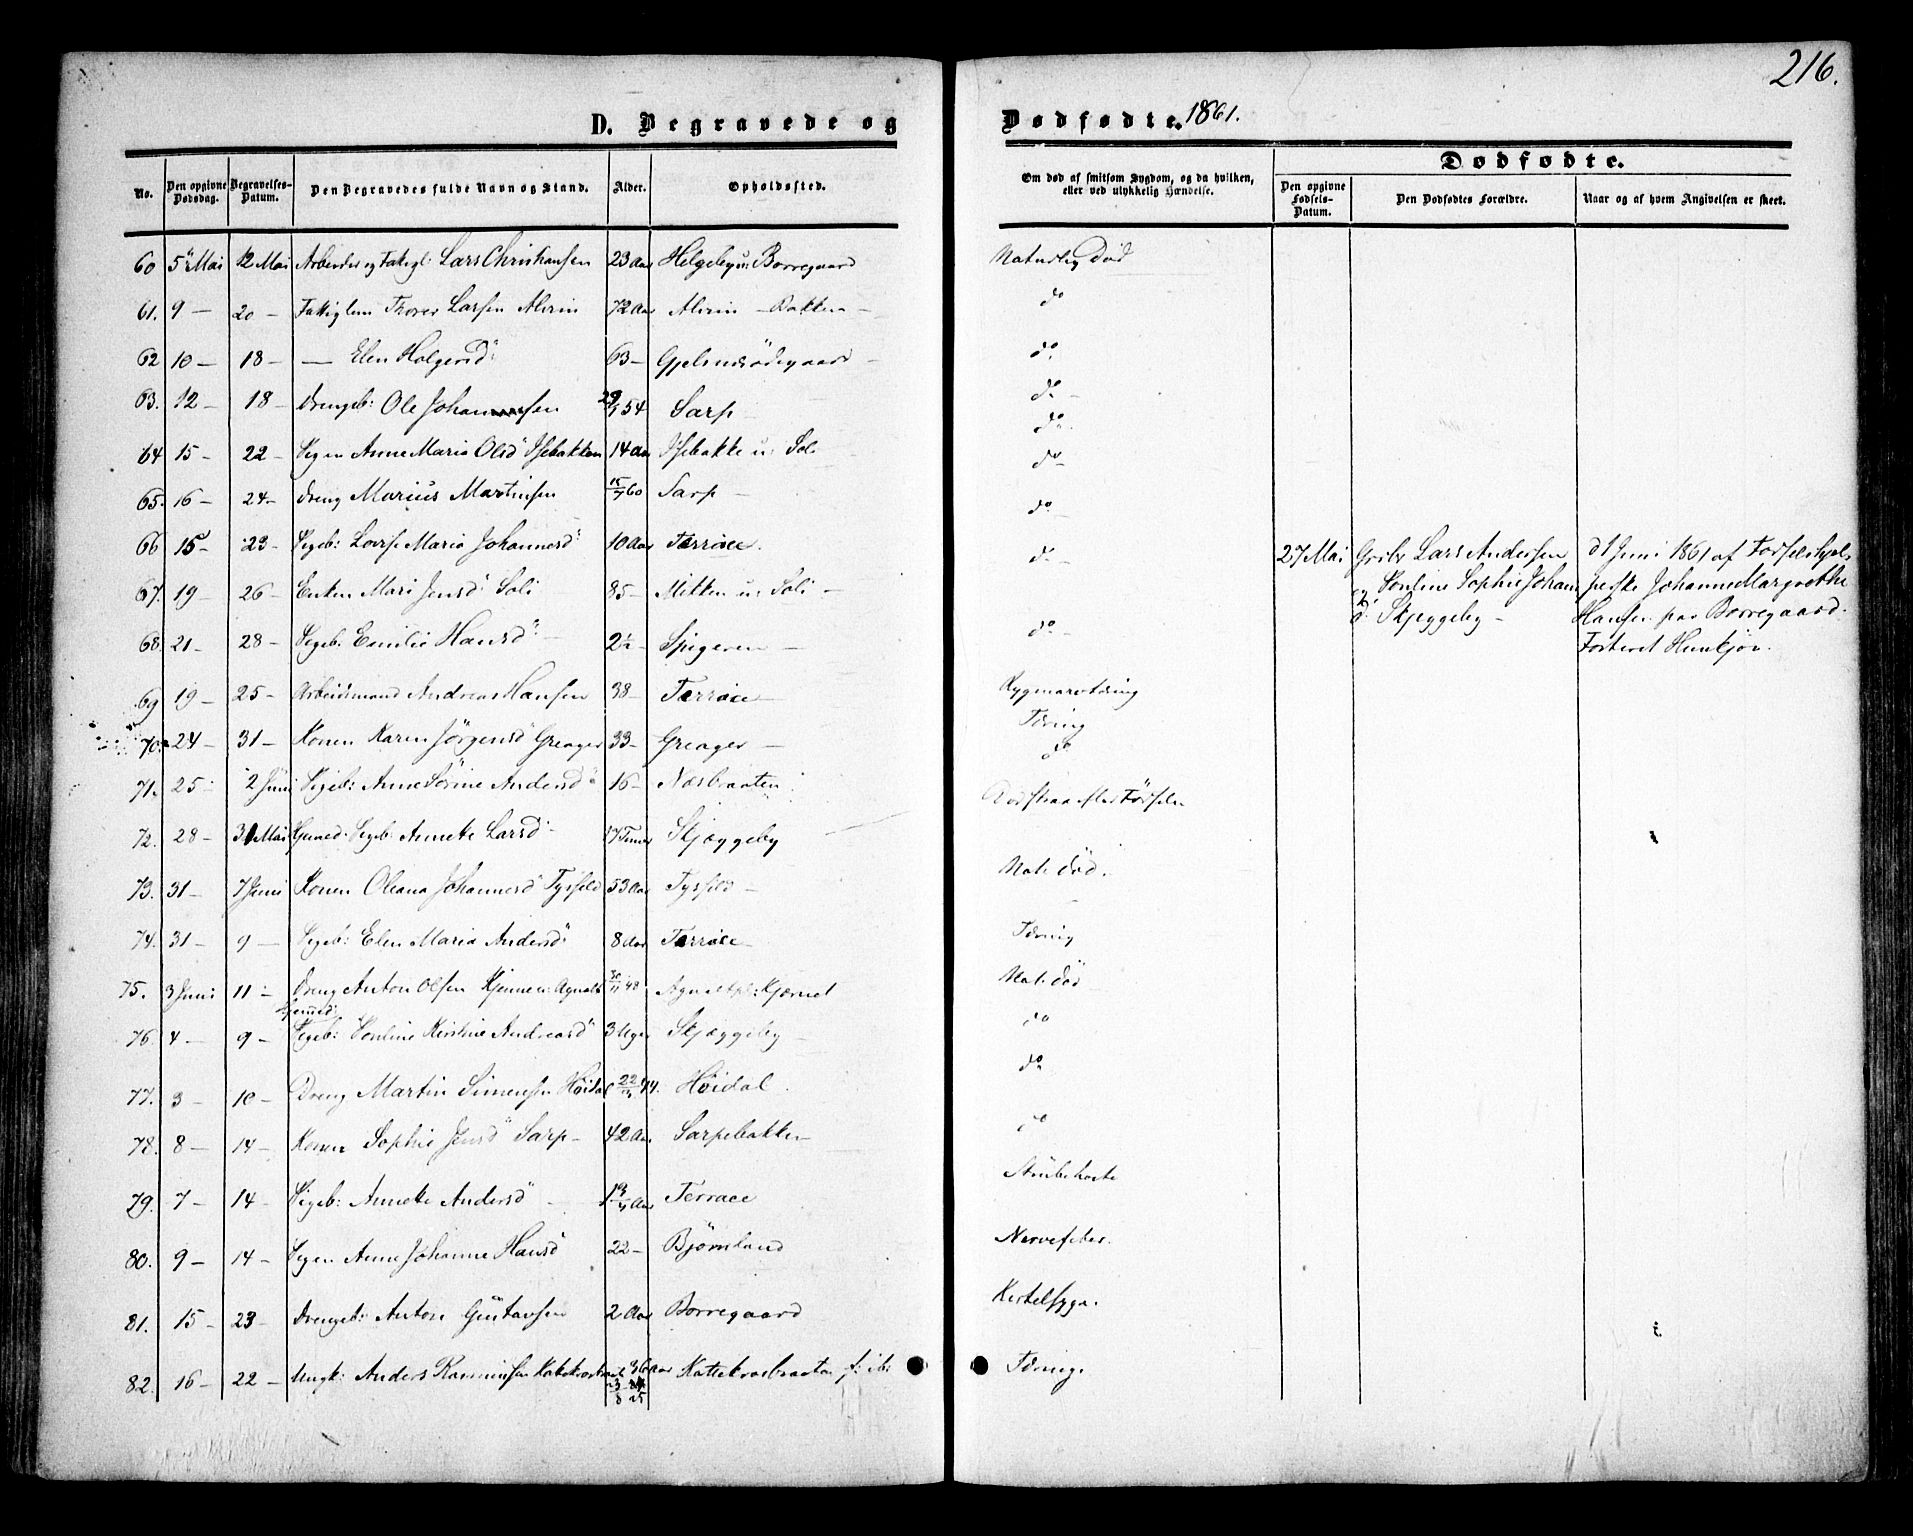 216.
D. Begravede og Dødfødte. 1861.
No. Den opgivne Dødsdag. Begravelses-Datum. Den Begravedes fulde Navn og Stand. Alder. Opholdssted.
Om død af smitsom Sygdom, og da hvilken, eller ved ulykkelig Hændelse.
Dødfødte.
Den opgivne Fødsels-Datum. Den Dødfødtes Forældre. Naar og af hvem Angivelsen er skeet.
60 5 Mai 12 Mai Arbeider og Fattigl: Lars Christiansen 23 Aar Helgeby u: Borregaard Naturlig Død
61. 9 — 20 — Fattiglem Thorer Larsen Alvim 72 Aar Alvim — Bakken — do
62 10 — 18 — — Elen Holgersd: 63 — Gjelsnesødegaard — do
63. 12 — 18 — Drengeb: Ole Johannessen 54 Sarp — do —
64 15 — 22 — Pigen Anne Maria Olsd Isebakken 14 Aar Isebakke u: Soli do
65. 16 — 24 — Dreng Marius Martinsen 60 Sarp — do —
66 15 — 23 — Pigeb: Lovise Maria Johannesd: 10 Aar Terrace. do
67. 19 — 26 — Enken Mari Jensd: Soli 85 — Mitten u: Soli — do —
68. 21 — 28 — Pigeb: Emilie Hansd: 2½ — Spigeren — do —
69 19 — 25 — Arbeidsmand Andreas Hansen 38 — Terrace — Rygmarvtæring
70. 24 — 31 — Konen Karen Jörgensd Greager 33 — Greager — Tæring
71. 25 2 Juni Pigeb: Anne Sörine Andersd 16 — Næsbraaten do
72. 28 — 31 Mai Pigeb: Annette Larsd: 17 Timer Skjæggeby
73. 31 — 7 Juni Konen Oleana Johannesd Tysfeld 53 Aar Tysfeld — Nat: Død.
74. 31 — 9 — Pigeb: Elen Maria Andersd: 8 Aar Terrace — Tæring
75. 3 Juni 11 — Dreng Anton Olsen 48 Nat: Død
76. 4 — 9 — Pigeb: Kirstine Andreasd: 3 Uger Skjæggeby — do
77. 3 — 10 — Dreng Martin Simensen Høidal 44. Høidal. do
78. 8 — 14 — Konen Sophie Jensd: Sarp — 42 Aar Sarpebakken do
79. 7 — 14 — Pigeb: Annette Andersd: — Aar Terrace Strubehoste
80. 9 — 14 — Pigen Anne Johanne Hansd 22 — Bjørnland Nervefeber.
81. 15 — 23 — Drengeb: Anton Gustavsen 2 Aar Borregaard Kirtelsyge.
82. 16 — 22 — Ungk: Anders Rasmussen 36 Aar Kattekrosbraaten f: ib: Tæring.
27 Mai Grbr Lars Andersen
og Pouline Sophie Johannesd: Skjeggeby —
d 1 Juni 1861 af Fødselshjelperske Johanne Margrethe
Hansen paa Borregaard.
Fosteret Hunkjøn.